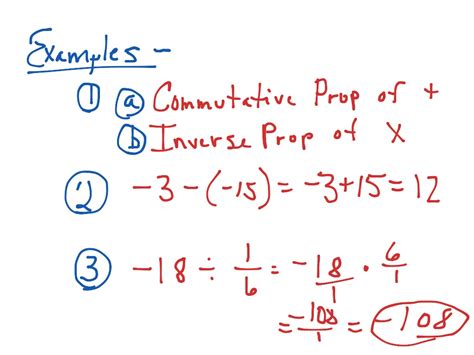 Examples -
① ⓐ Commutative Prop of +
ⓑ Inverse Prop of X
② -3 - (-15) = -3+15 = 12
③ -18 ÷ 1/6 = -18/1 · 6/1
= -108/1 = -108